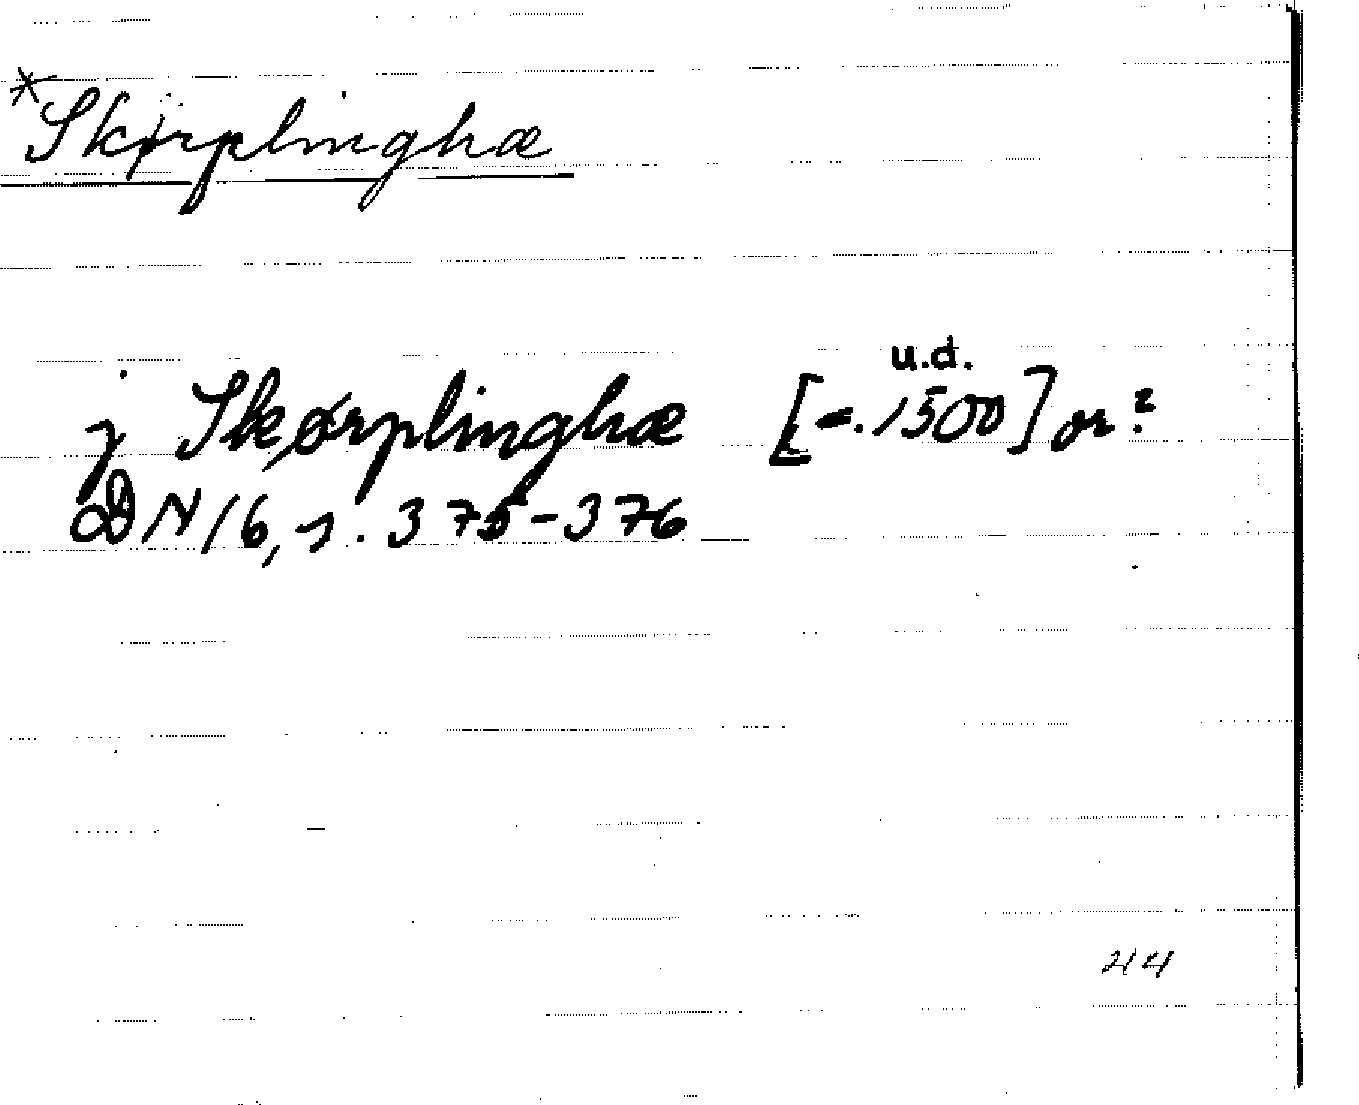 *Skørplinghæ
u.d.
j Skørplinghæ [=.1500] or?
DN 16, s. 375-376
44